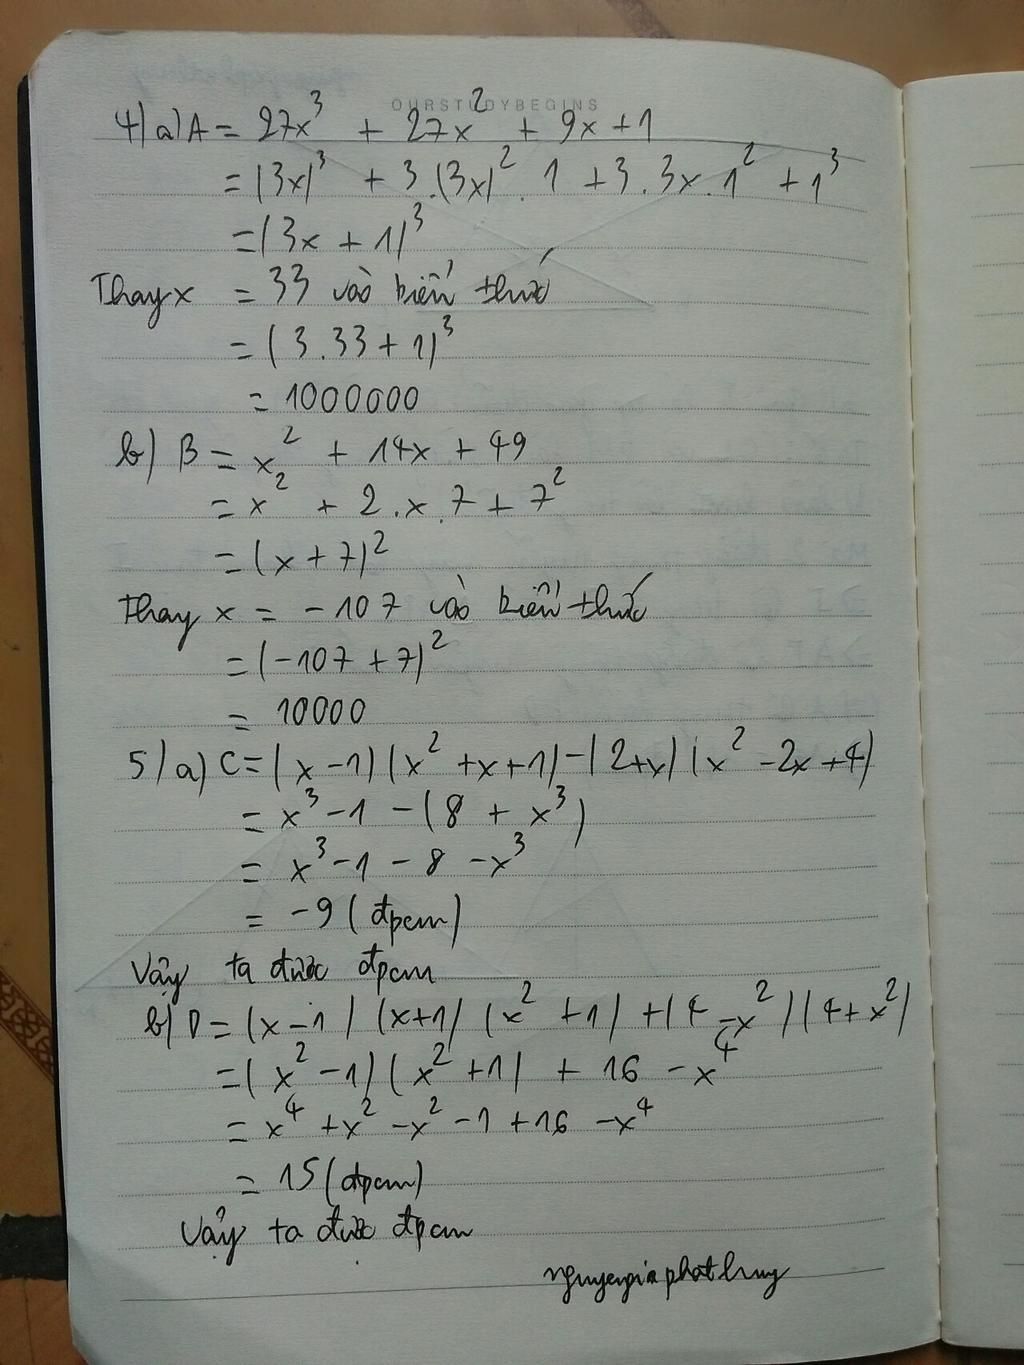 OURSTUDYBEGINS
4) a) A = 27x³ + 27x² + 9x + 1
= (3x)³ + 3.(3x)².1 + 3.3x.1² + 1³
= (3x + 1)³
Thay x = 33 vào biểu thức
= (3.33 + 1)³
= 1000000
b) B = x² + 14x + 49
= x² + 2.x.7 + 7²
= (x + 7)²
Thay x = -107 vào biểu thức
= (-107 + 7)²
= 10000
5) a) C = (x - 1)(x² + x + 1) - (2 + x)(x² - 2x + 4)
= x³ - 1 - (8 + x³)
= x³ - 1 - 8 - x³
= -9 (đpcm)
Vậy ta được đpcm
b) D = (x - 1)(x + 1)(x² + 1) + (4 - x²)(4 + x²)
= (x² - 1)(x² + 1) + 16 - x⁴
= x⁴ + x² - x² - 1 + 16 - x⁴
= 15 (đpcm)
Vậy ta được đpcm
nguyengiaphathuy